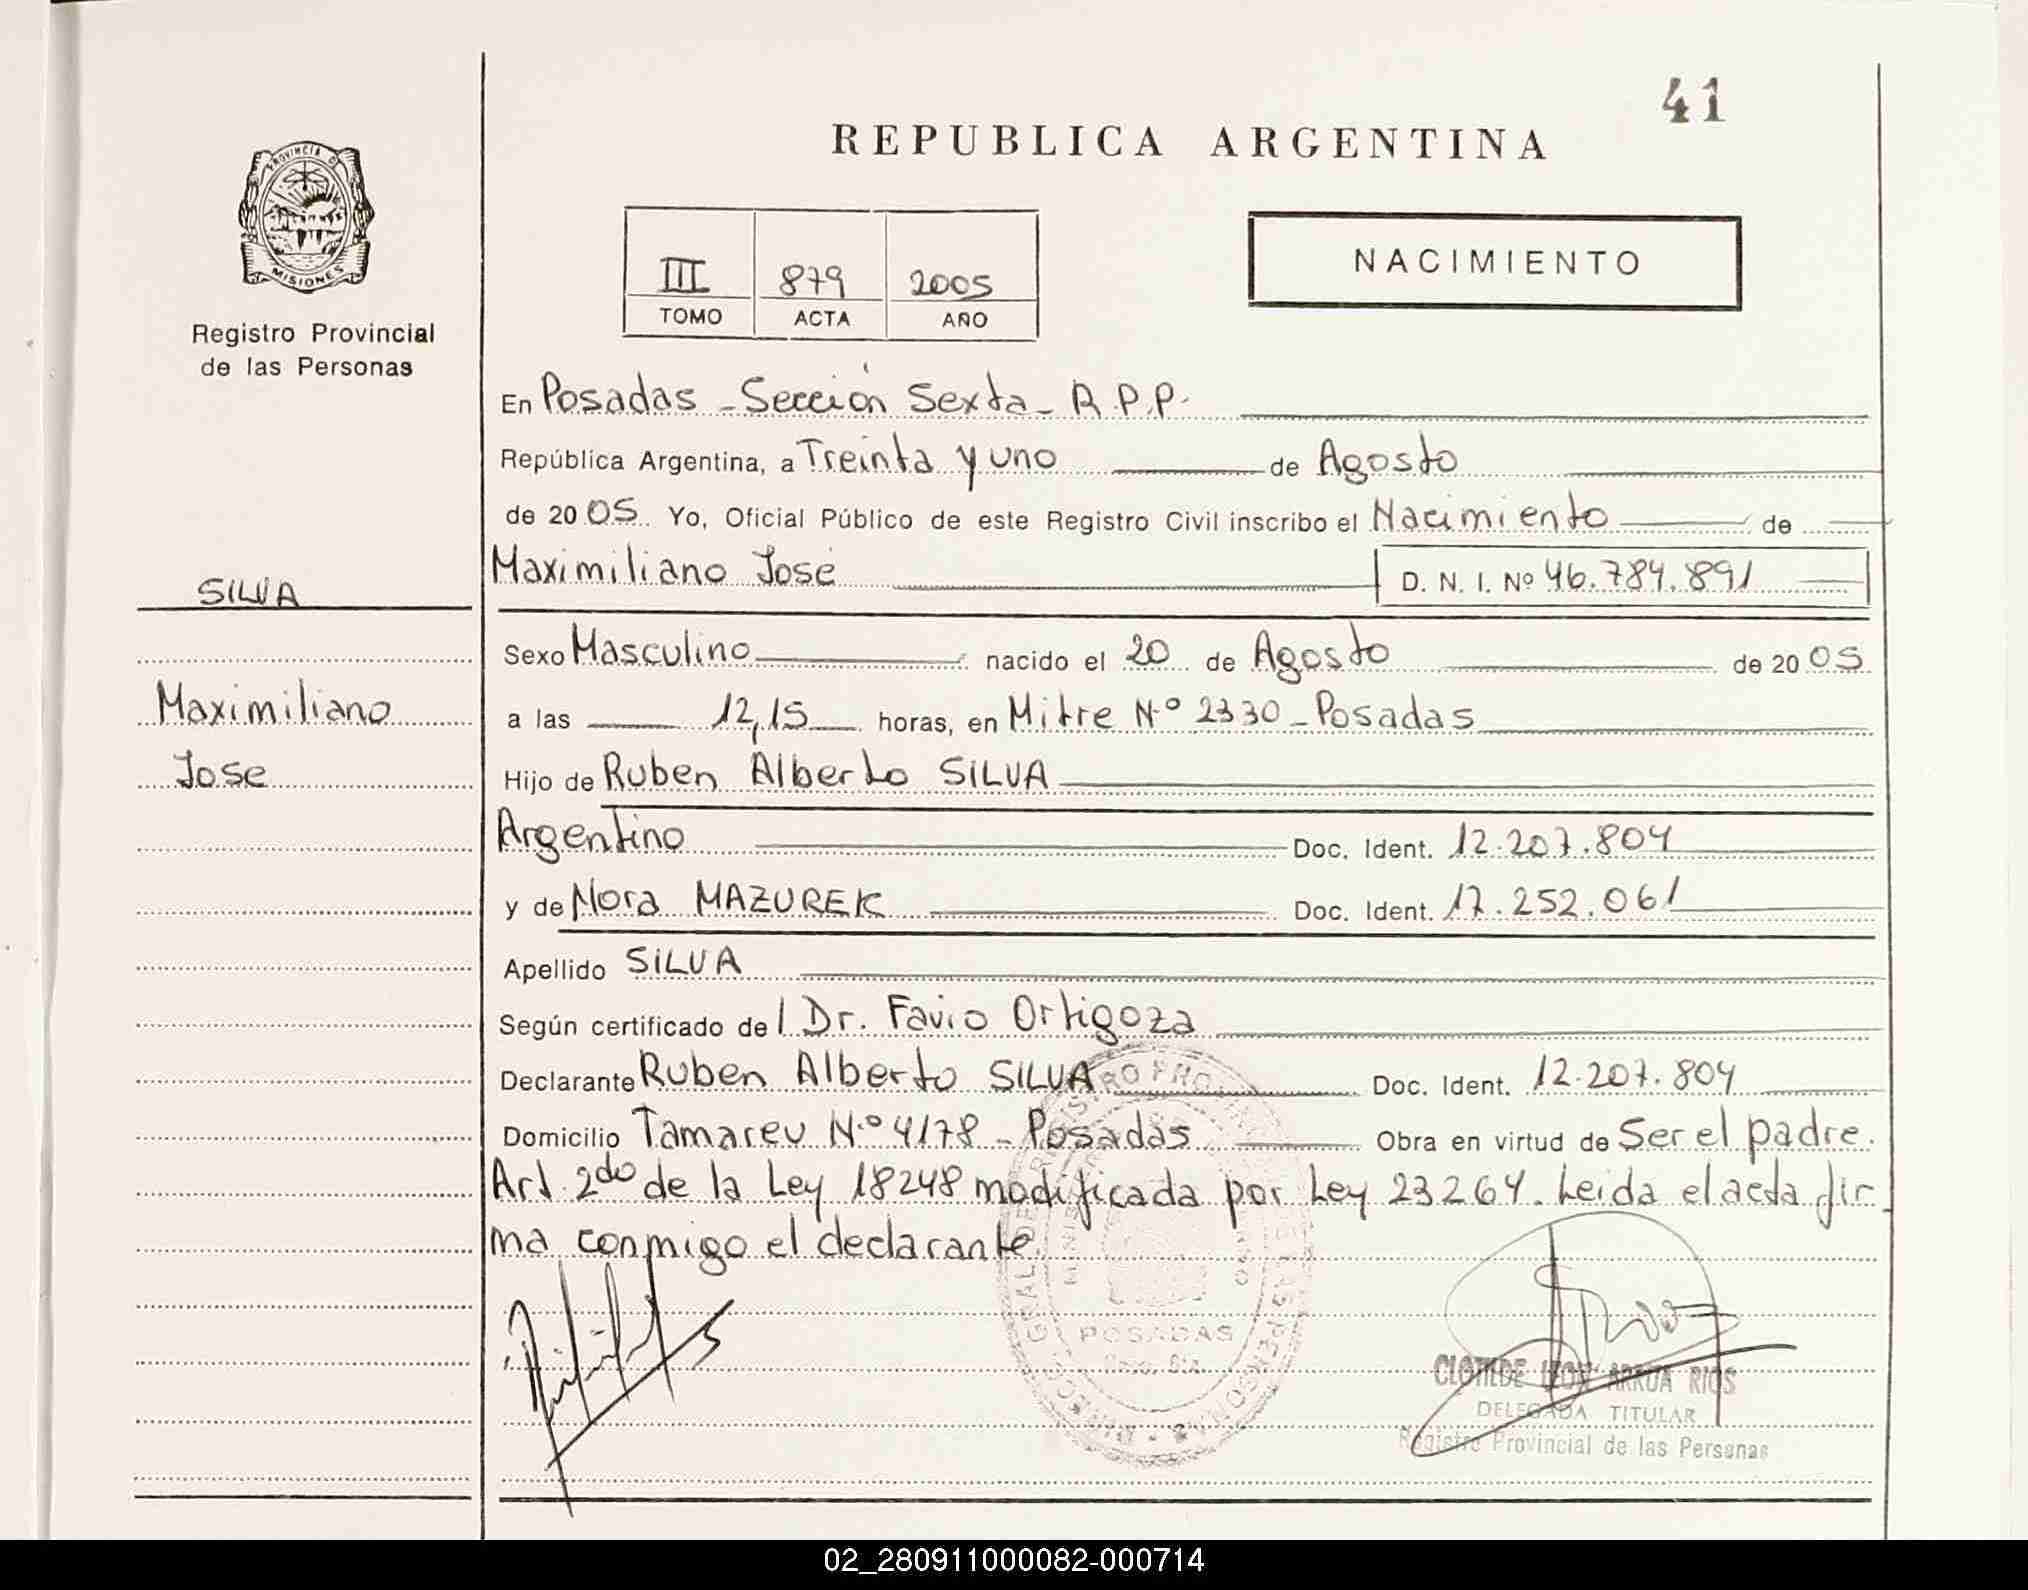 41
REPUBLICA ARGENTINA
PROVINCIA D
MISIONES
Registro Provincial
de las Personas
III 879 2005
TOMO ACTA AÑO
NACIMIENTO
En Posadas - Sección Sexta - R.P.P.
República Argentina, a Treinta y uno de Agosto
de 2005. Yo, Oficial Público de este Registro Civil inscribo el Nacimiento de
Maximiliano José D. N. I. Nº 46.784.891
SILVA
Sexo Masculino nacido el 20 de Agosto de 2005
Maximiliano
a las 12,15 horas, en Mitre Nº 2330 - Posadas
Jose
Hijo de Ruben Alberto SILVA
Argentino Doc. Ident. 12.207.804
y de Nora MAZUREK Doc. Ident. 17.252.061
Apellido SILVA
Según certificado del Dr. Favio Ortigoza
Declarante Ruben Alberto SILVA Doc. Ident. 12.207.804
Domicilio Tamareu Nº 4178 - Posadas Obra en virtud de Ser el padre.
Art. 2do de la Ley 18248 modificada por Ley 23264. Leida el acta fir
ma conmigo el declarante.
POSADAS
CLOTILDE LEON ARRUA RIOS
DELEGADA TITULAR
Registro Provincial de las Personas
02_280911000082-000714